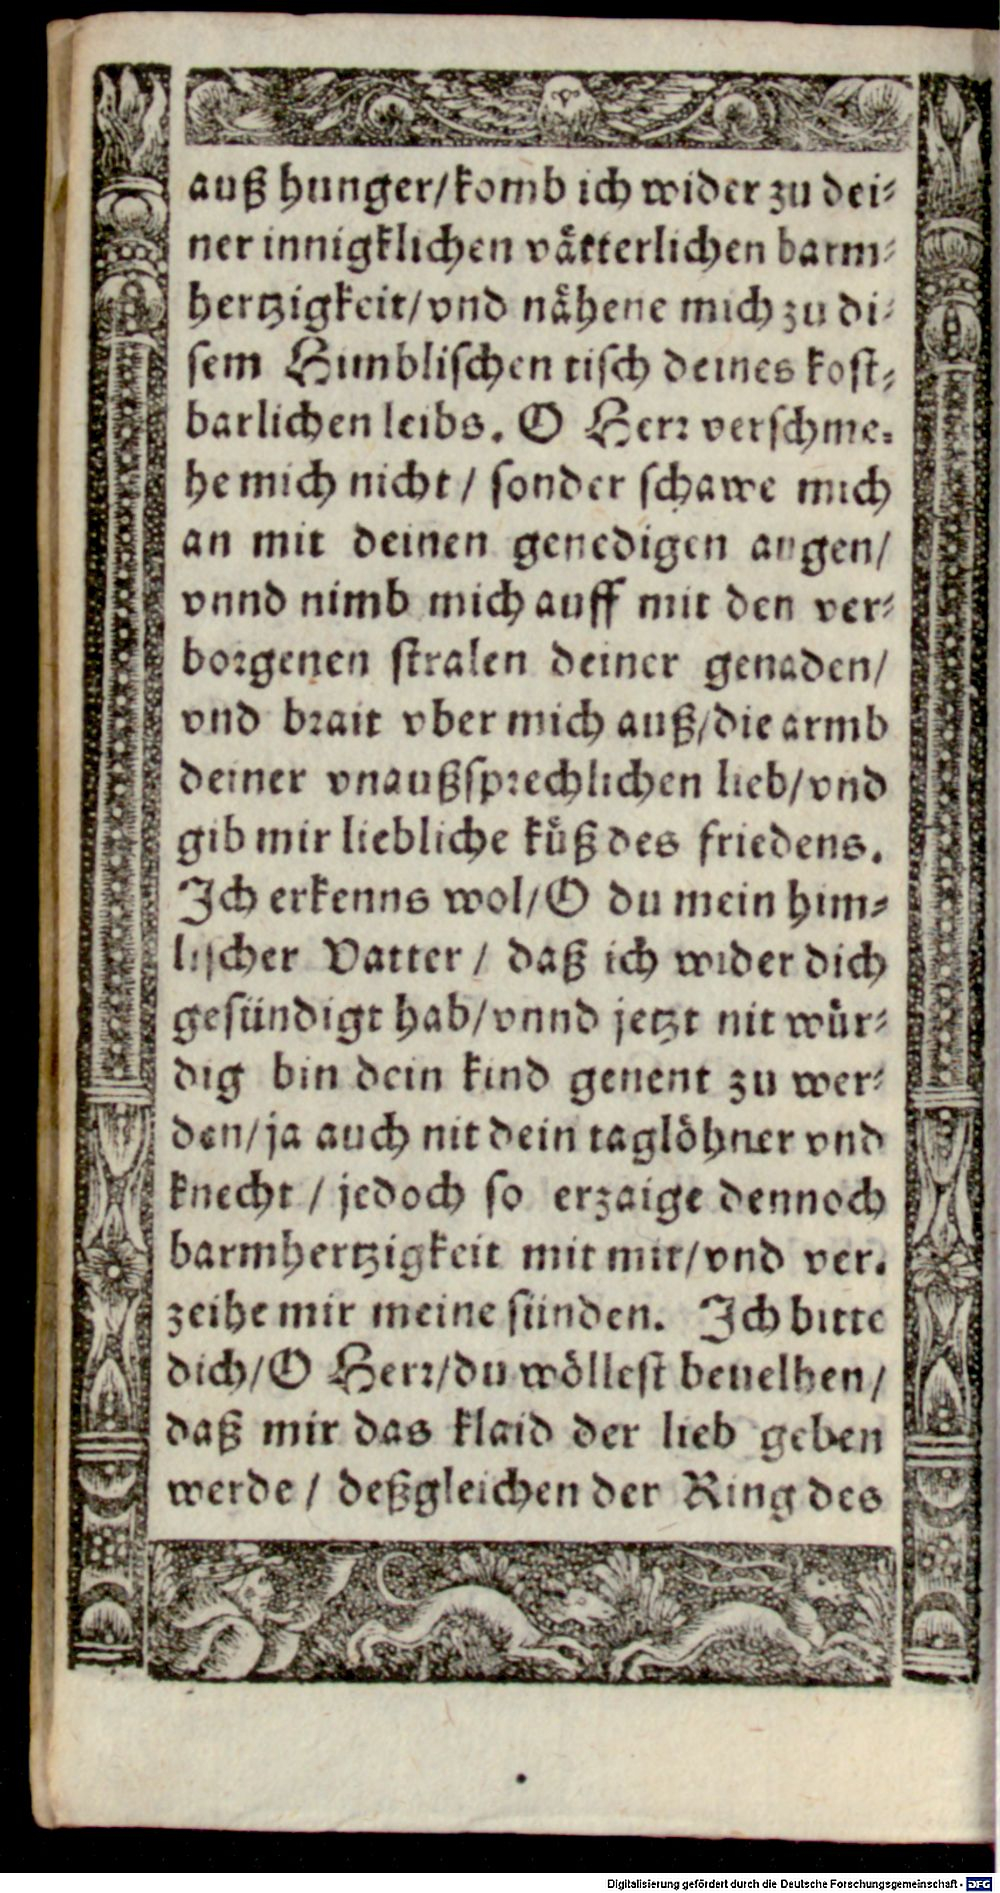 auß hunger/komb ich wider zu dei⸗
ner innigklichen vätterlichen barm⸗
hertzigkeit/vnd nähene mich zu di⸗
sem Himblischen tisch deines kost⸗
barlichen leibs. O Herr verschme⸗
he mich nicht / sonder schawe mich
an mit deinen genedigen augen/
vnnd nimb mich auff mit den ver⸗
borgenen stralen deiner genaden/
vnd brait vber mich auß/die armb
deiner vnaußsprechlichen lieb/vnd
gib mir liebliche küß des friedens.
Ich erkenns wol/O du mein him⸗
lischer Vatter / daß ich wider dich
gesündigt hab/vnnd jetzt nit wür⸗
dig bin dein kind genent zu wer⸗
den/ja auch nit dein taglöhner vnd
knecht / jedoch so erzaige dennoch
barmhertzigkeit mit mir/vnd ver.
zeihe mir meine sünden. Ich bitte
dich/O Herr/du wöllest beuelhen/
daß mir das klaid der lieb geben
werde / deßgleichen der Ring des
Digitalisierung gefördert durch die Deutsche Forschungsgemeinschaft - DFG